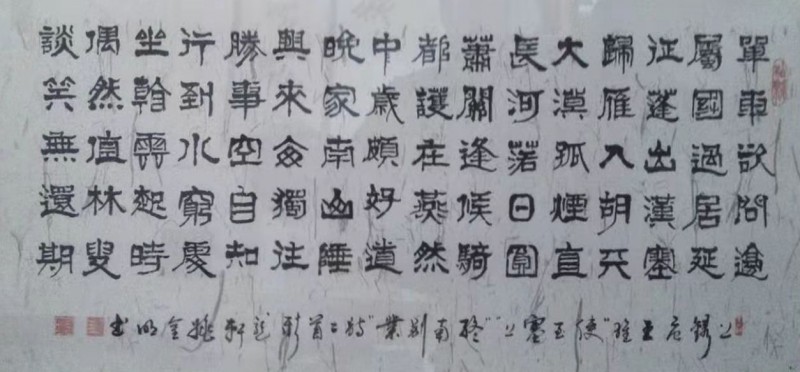 單車欲問邊
屬國過居延
征蓬出漢塞
歸雁入胡天
大漠孤煙直
長河落日圓
蕭關逢候騎
都護在燕然
中歲頗好道
晚家南山陲
興來每獨往
勝事空自知
行到水窮處
坐看雲起時
偶然值林叟
談笑無還期
上錄唐王維“使至塞上”“終南別業”詩二首 軒 金明書